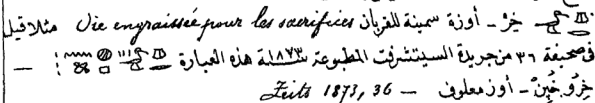 خز - أوزة سمينة للقربان Oie engraissée pour les sacrifices مثلا قيل
فى صحيفة ٣٦ من جريدة السيتشرفت المطبوعة سنة ١٨٧٣ هذه العبارة
خزو خين - أوز معلوف - Zeits 1873, 36